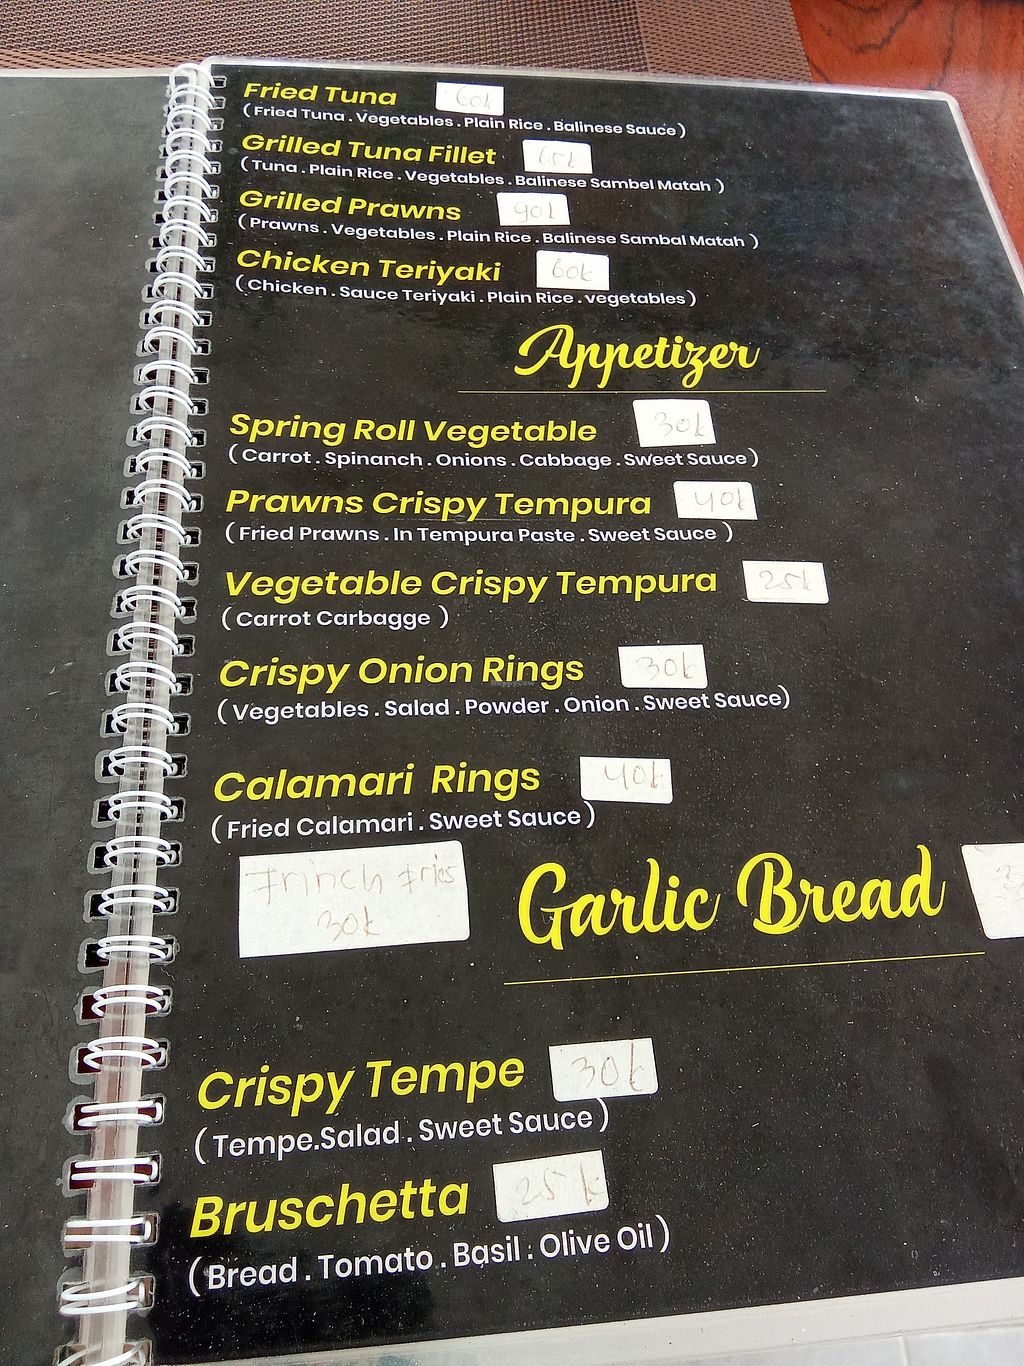 Fried Tuna 60k
( Fried Tuna . Vegetables . Plain Rice . Balinese Sauce )
Grilled Tuna Fillet 65k
( Tuna . Plain Rice . Vegetables . Balinese Sambel Matah )
Grilled Prawns 90k
( Prawns . Vegetables . Plain Rice . Balinese Sambal Matah )
Chicken Teriyaki 60k
( Chicken . Sauce Teriyaki . Plain Rice . vegetables )
Appetizer
Spring Roll Vegetable 30k
( Carrot . Spinanch . Onions . Cabbage . Sweet Sauce )
Prawns Crispy Tempura 40k
( Fried Prawns . In Tempura Paste . Sweet Sauce )
Vegetable Crispy Tempura 25k
( Carrot Carbagge )
Crispy Onion Rings 30k
( Vegetables . Salad . Powder . Onion . Sweet Sauce)
Calamari Rings 40k
( Fried Calamari . Sweet Sauce )
Frinch Fries
30k
Garlic Bread
Crispy Tempe 30k
( Tempe.Salad . Sweet Sauce )
Bruschetta 25k
( Bread . Tomato . Basil . Olive Oil )